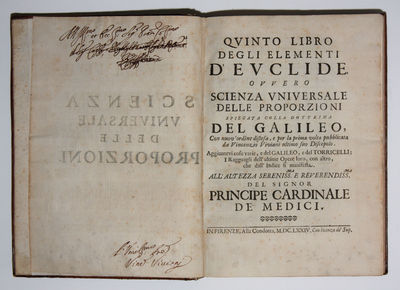 SCIENZA
VNIVERSALE
DELLE
PROPORZIONI
QVINTO LIBRO
DEGLI ELEMENTI
D'EVCLIDE.
OVVERO
SCIENZA VNIVERSALE
DELLE PROPORZIONI
SPIEGATA COLLA DOTTRINA
DEL GALILEO,
Con nuovo ordine distesa, e per la prima volta pubblicata
da Vincenzio Viviani ultimo suo Discepolo.
Aggiuntevi cose varie, e del GALILEO, e del TORRICELLI;
I Ragguagli dell'ultime Opere loro, con altro,
che dall'Indice si manifesta.
ALL'ALTEZZA SERENISS. E REVERENDISS.
DEL SIGNOR
PRINCIPE CARDINALE
DE MEDICI.
IN FIRENZE, Alla Condotta, M.DC.LXXIV. Con licenza de' Sup.